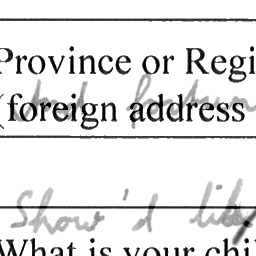 Province or Regi
(foreign address
Show'd like
What is your chi